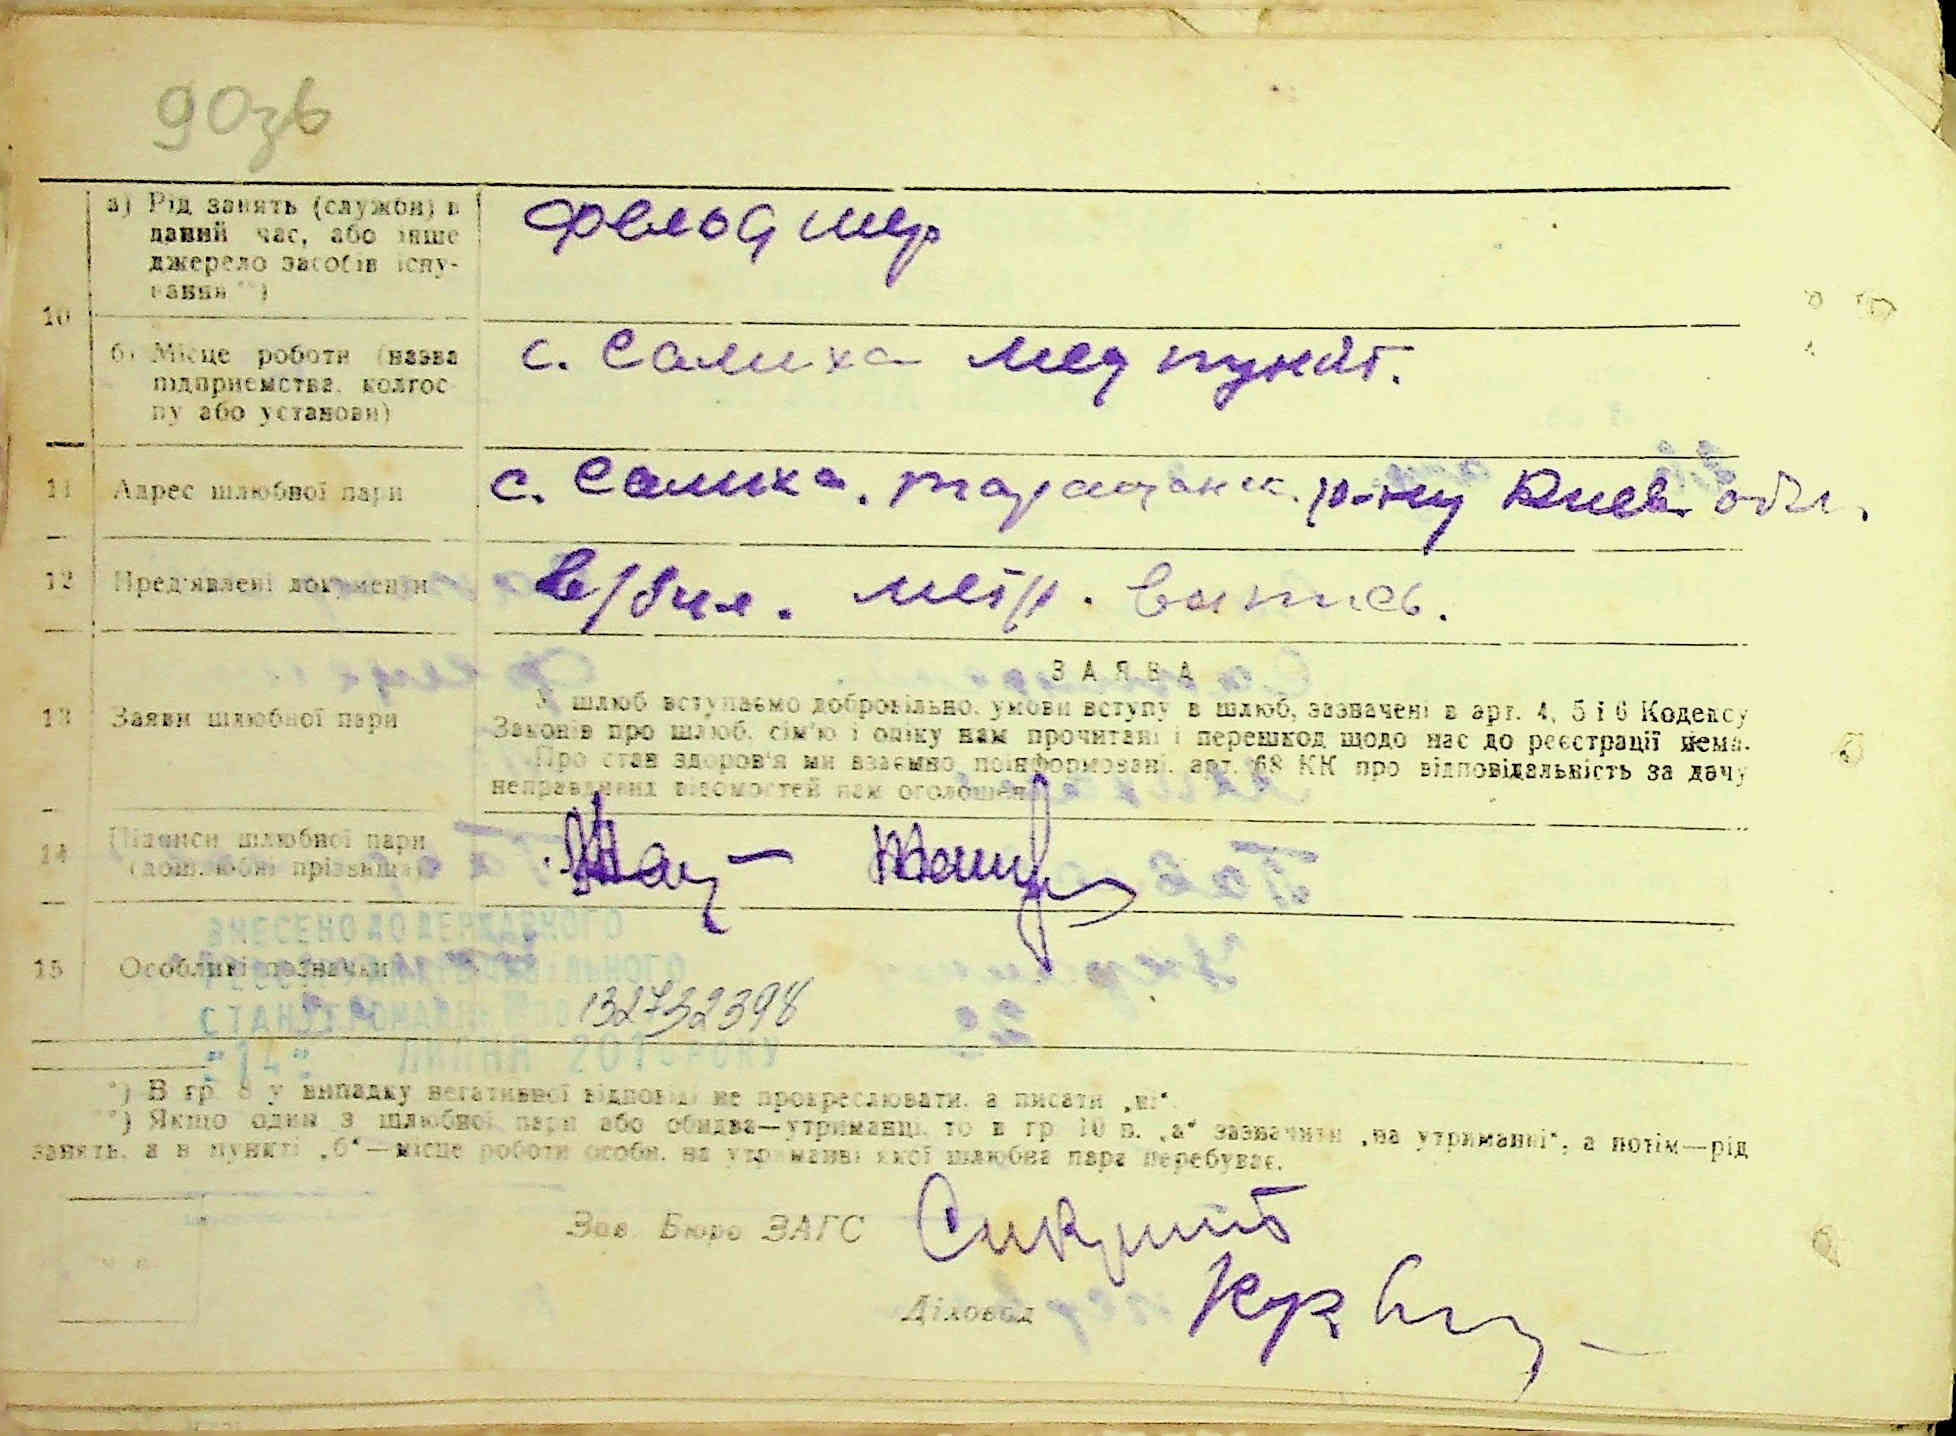 90зв
а) Рід занять (служби) в
даний час, або інше
джерело засобів існу-
вання **)
фельдшер
10
б) Місце роботи (назва
підприємства, колгос-
пу або установи)
с. Салиха мед пункт.
11 Адрес шлюбної пари
с. Салиха. таращанск. р-ну Киев. обл.
12 Пред'явлені документи
в/бил. метр. выпись.
ЗАЯВА
13 Заяви шлюбної пари
У шлюб вступаємо добровільно, умови вступу в шлюб, зазначені в арт. 4, 5 і 6 Кодексу
Законів про шлюб, сім'ю і опіку нам прочитані і перешкод щодо нас до реєстрації нема.
Про стан здоров'я ми взаємно поінформовані, арт. 68 КК про відповідальність за дачу
неправдивих відомостей нам оголошен
14 Підписи шлюбної пари
(дошлюбні прізвища)
15 Особливі позначки
ВНЕСЕНО ДО ДЕРЖАВНОГО
РЕЄСТРУ АКТІВ ЦИВІЛЬНОГО
СТАНУ ГРОМАДЯН
132732398
"14" ЛИПНЯ 201 РОКУ
*) В гр. 8 у випадку негативної відповіді не прокреслювати, а писати „ні“.
**) Якщо один з шлюбної пари або обидва—утриманці, то в гр. 10 п. „а“ зазначити „на утриманні“, а потім—рід
занять, а в пункті „б“—місце роботи особи, на утриманні якої шлюбна пара перебуває.
Зав. Бюро ЗАГС
Діловод
М. П.